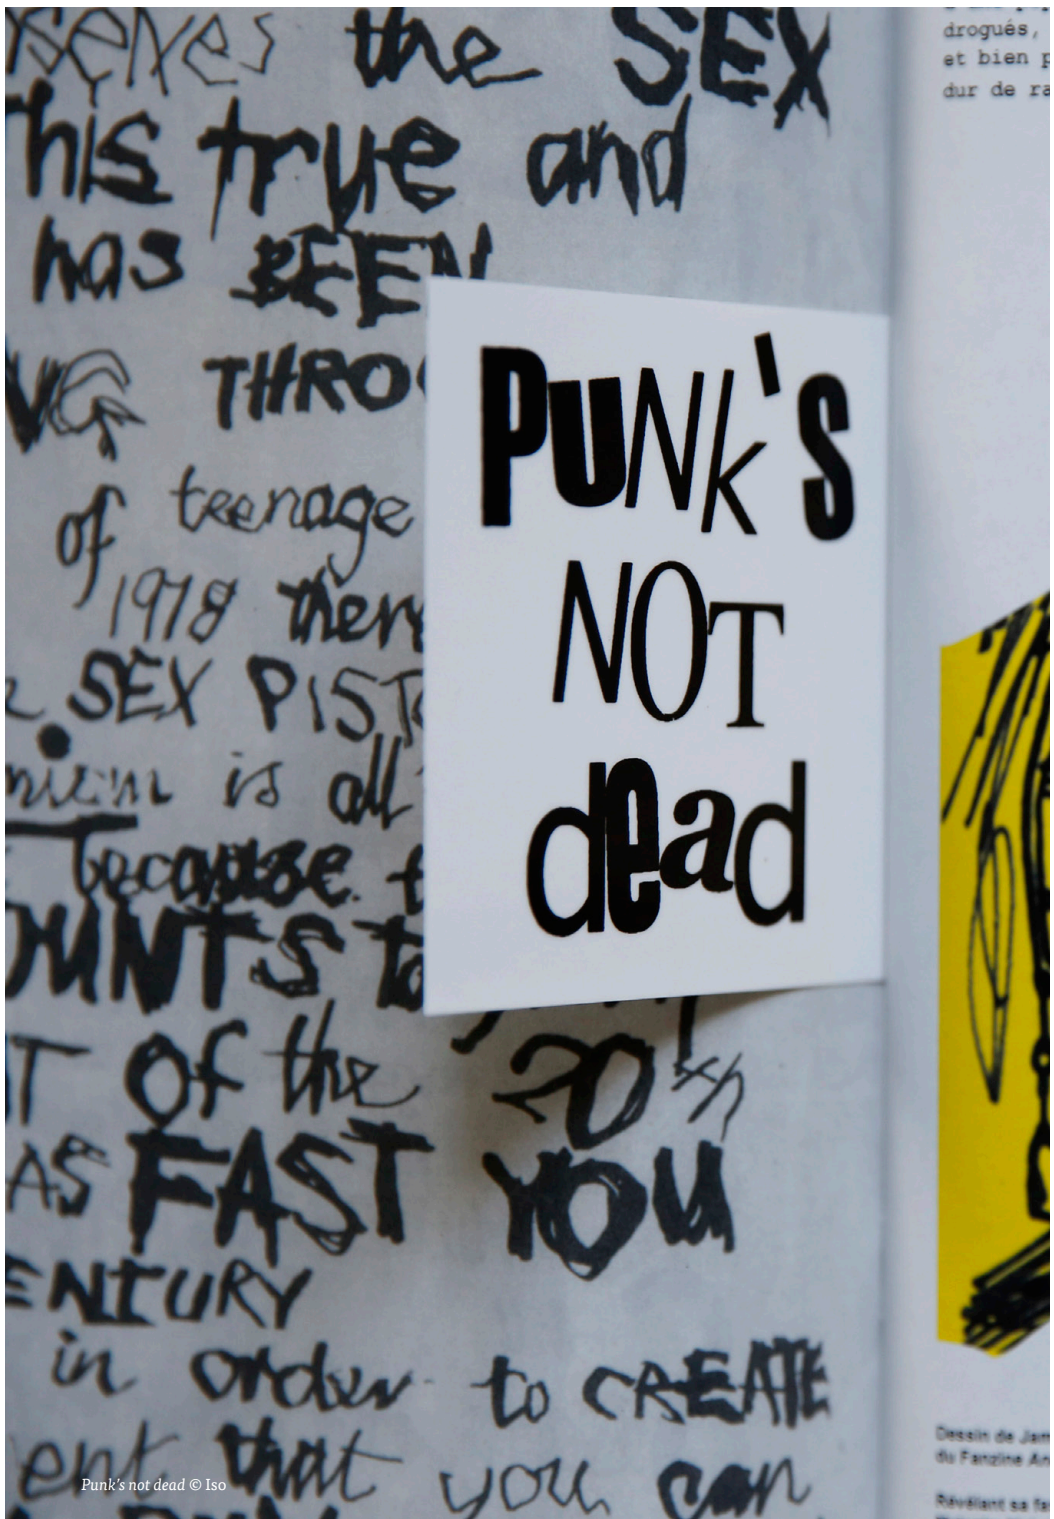 the SEX
his true and
has BEEN
THRO
of teenage
1978 there
SEX PIST
is all
because t
OUNTS to
T Of the 20th
AS FAST YOU
ENTURY
in order to CREATE
ent that you can
PUNk's
NOT
dead
drogués,
et bien p
dur de ra
Dessin de Jam
du Fanzine An
Révélant sa fa
Punk's not dead © Iso